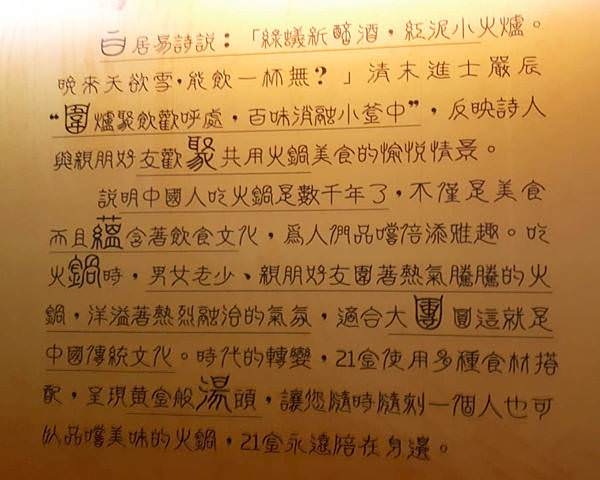 白居易詩說：「綠蟻新醅酒，紅泥小火爐。
晚來天欲雪，能飲一杯無？」清末進士嚴辰
“圍爐聚飲歡呼處，百味消融小釜中”，反映詩人
與親朋好友歡聚共用火鍋美食的愉悅情景。
說明中國人吃火鍋足數千年了，不僅是美食
而且蘊含著飲食文化，為人們品嚐倍添雅趣。吃
火鍋時，男女老少、親朋好友圍著熱氣騰騰的火
鍋，洋溢著熱烈融洽的氣氛，適合大團圓這就是
中國傳統文化。時代的轉變，21金使用多種食材搭
配，呈現黃金般湯頭，讓您隨時隨刻一個人也可
以品嚐美味的火鍋，21金永遠陪在身邊。